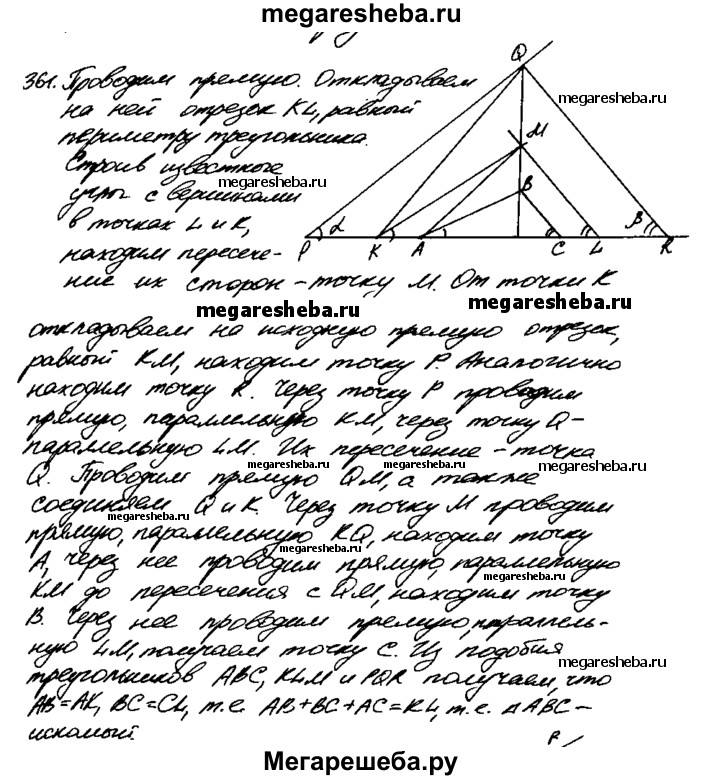 megaresheba.ru
361. Проводим прямую. Откладываем
на ней отрезок KL, равный
периметру треугольника.
Строив известные
углы с вершинами
в точках L и K,
находим пересече-
ние их сторон - точку M. От точки K
откладываем на исходную прямую отрезок,
равный KM, находим точку P. Аналогично
находим точку R. Через точку P проводим
прямую, параллельную KM, через точку Q -
параллельную LM. Их пересечение - точка
Q. Проводим прямую QM, а также
соединяем Q и K. Через точку M проводим
прямую, параллельную KQ, находим точку
A, через нее проводим прямую, параллельную
KM до пересечения с QM, находим точку
B. Через нее проводим прямую, параллель-
ную LM, получаем точку C. Из подобия
треугольников ABC, KLM и PQR получаем, что
AB=AK, BC=CL, т.е. AB+BC+AC=KL, т.е. ΔABC -
искомый.
Q
M
B
α
β
P
K
A
C
L
R
megaresheba.ru
megaresheba.ru
megaresheba.ru
megaresheba.ru
megaresheba.ru
megaresheba.ru
megaresheba.ru
megaresheba.ru
megaresheba.ru
megaresheba.ru
megaresheba.ru
megaresheba.ru
Мегарешеба.ру